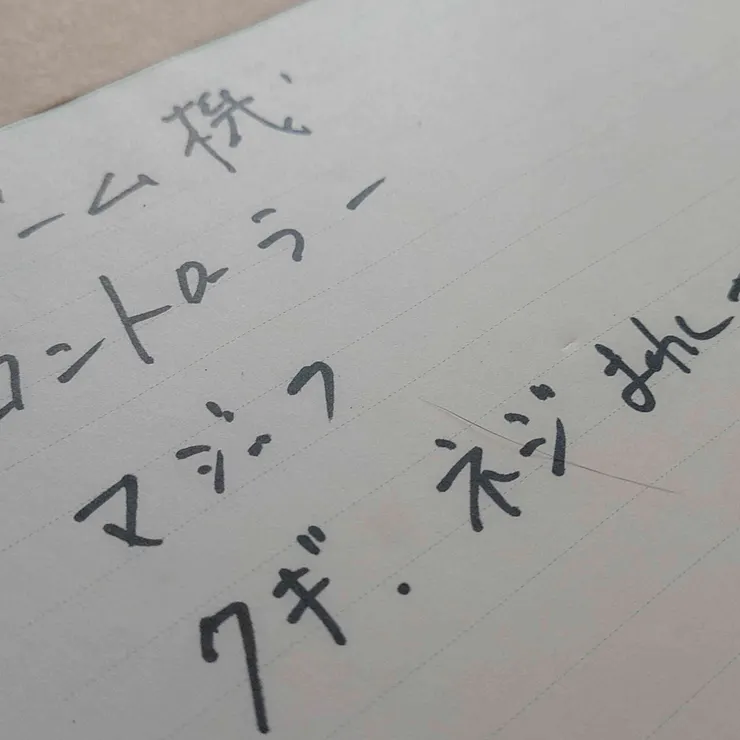 ゲーム機
コントローラー
マジック
クギ・ネジ